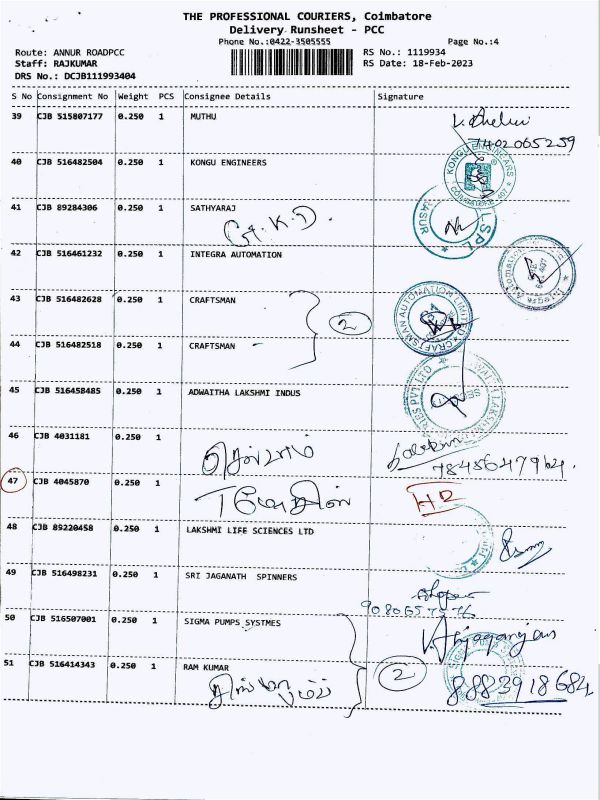 THE PROFESSIONAL COURIERS, Coimbatore
Delivery Runsheet - PCC
Phone No.:0422-3505555 Page No.:4
Route: ANNUR ROADPCC RS No.: 1119934
Staff: RAJKUMAR RS Date: 18-Feb-2023
DRS No.: DCJB111993404
S No Consignment No Weight PCS Consignee Details Signature
39 CJB 515807177 0.250 1 MUTHU
7402065259
40 CJB 516482504 0.250 1 KONGU ENGINEERS
KONGU ENGINEERS
41 CJB 89284306 0.250 1 SATHYARAJ
G.K.D. LSPL
42 CJB 516461232 0.250 1 INTEGRA AUTOMATION
43 CJB 516482628 0.250 1 CRAFTSMAN
2 CRAFTSMAN AUTOMATION LIMITED
44 CJB 516482518 0.250 1 CRAFTSMAN
45 CJB 516458485 0.250 1 ADWAITHA LAKSHMI INDUS
46 CJB 4031181 0.250 1
47 CJB 4045870 0.250 1
48 CJB 89220458 0.250 1 LAKSHMI LIFE SCIENCES LTD
49 CJB 516498231 0.250 1 SRI JAGANATH SPINNERS
50 CJB 516507001 0.250 1 SIGMA PUMPS SYSTMES
51 CJB 516414343 0.250 1 RAM KUMAR
2 8883918684